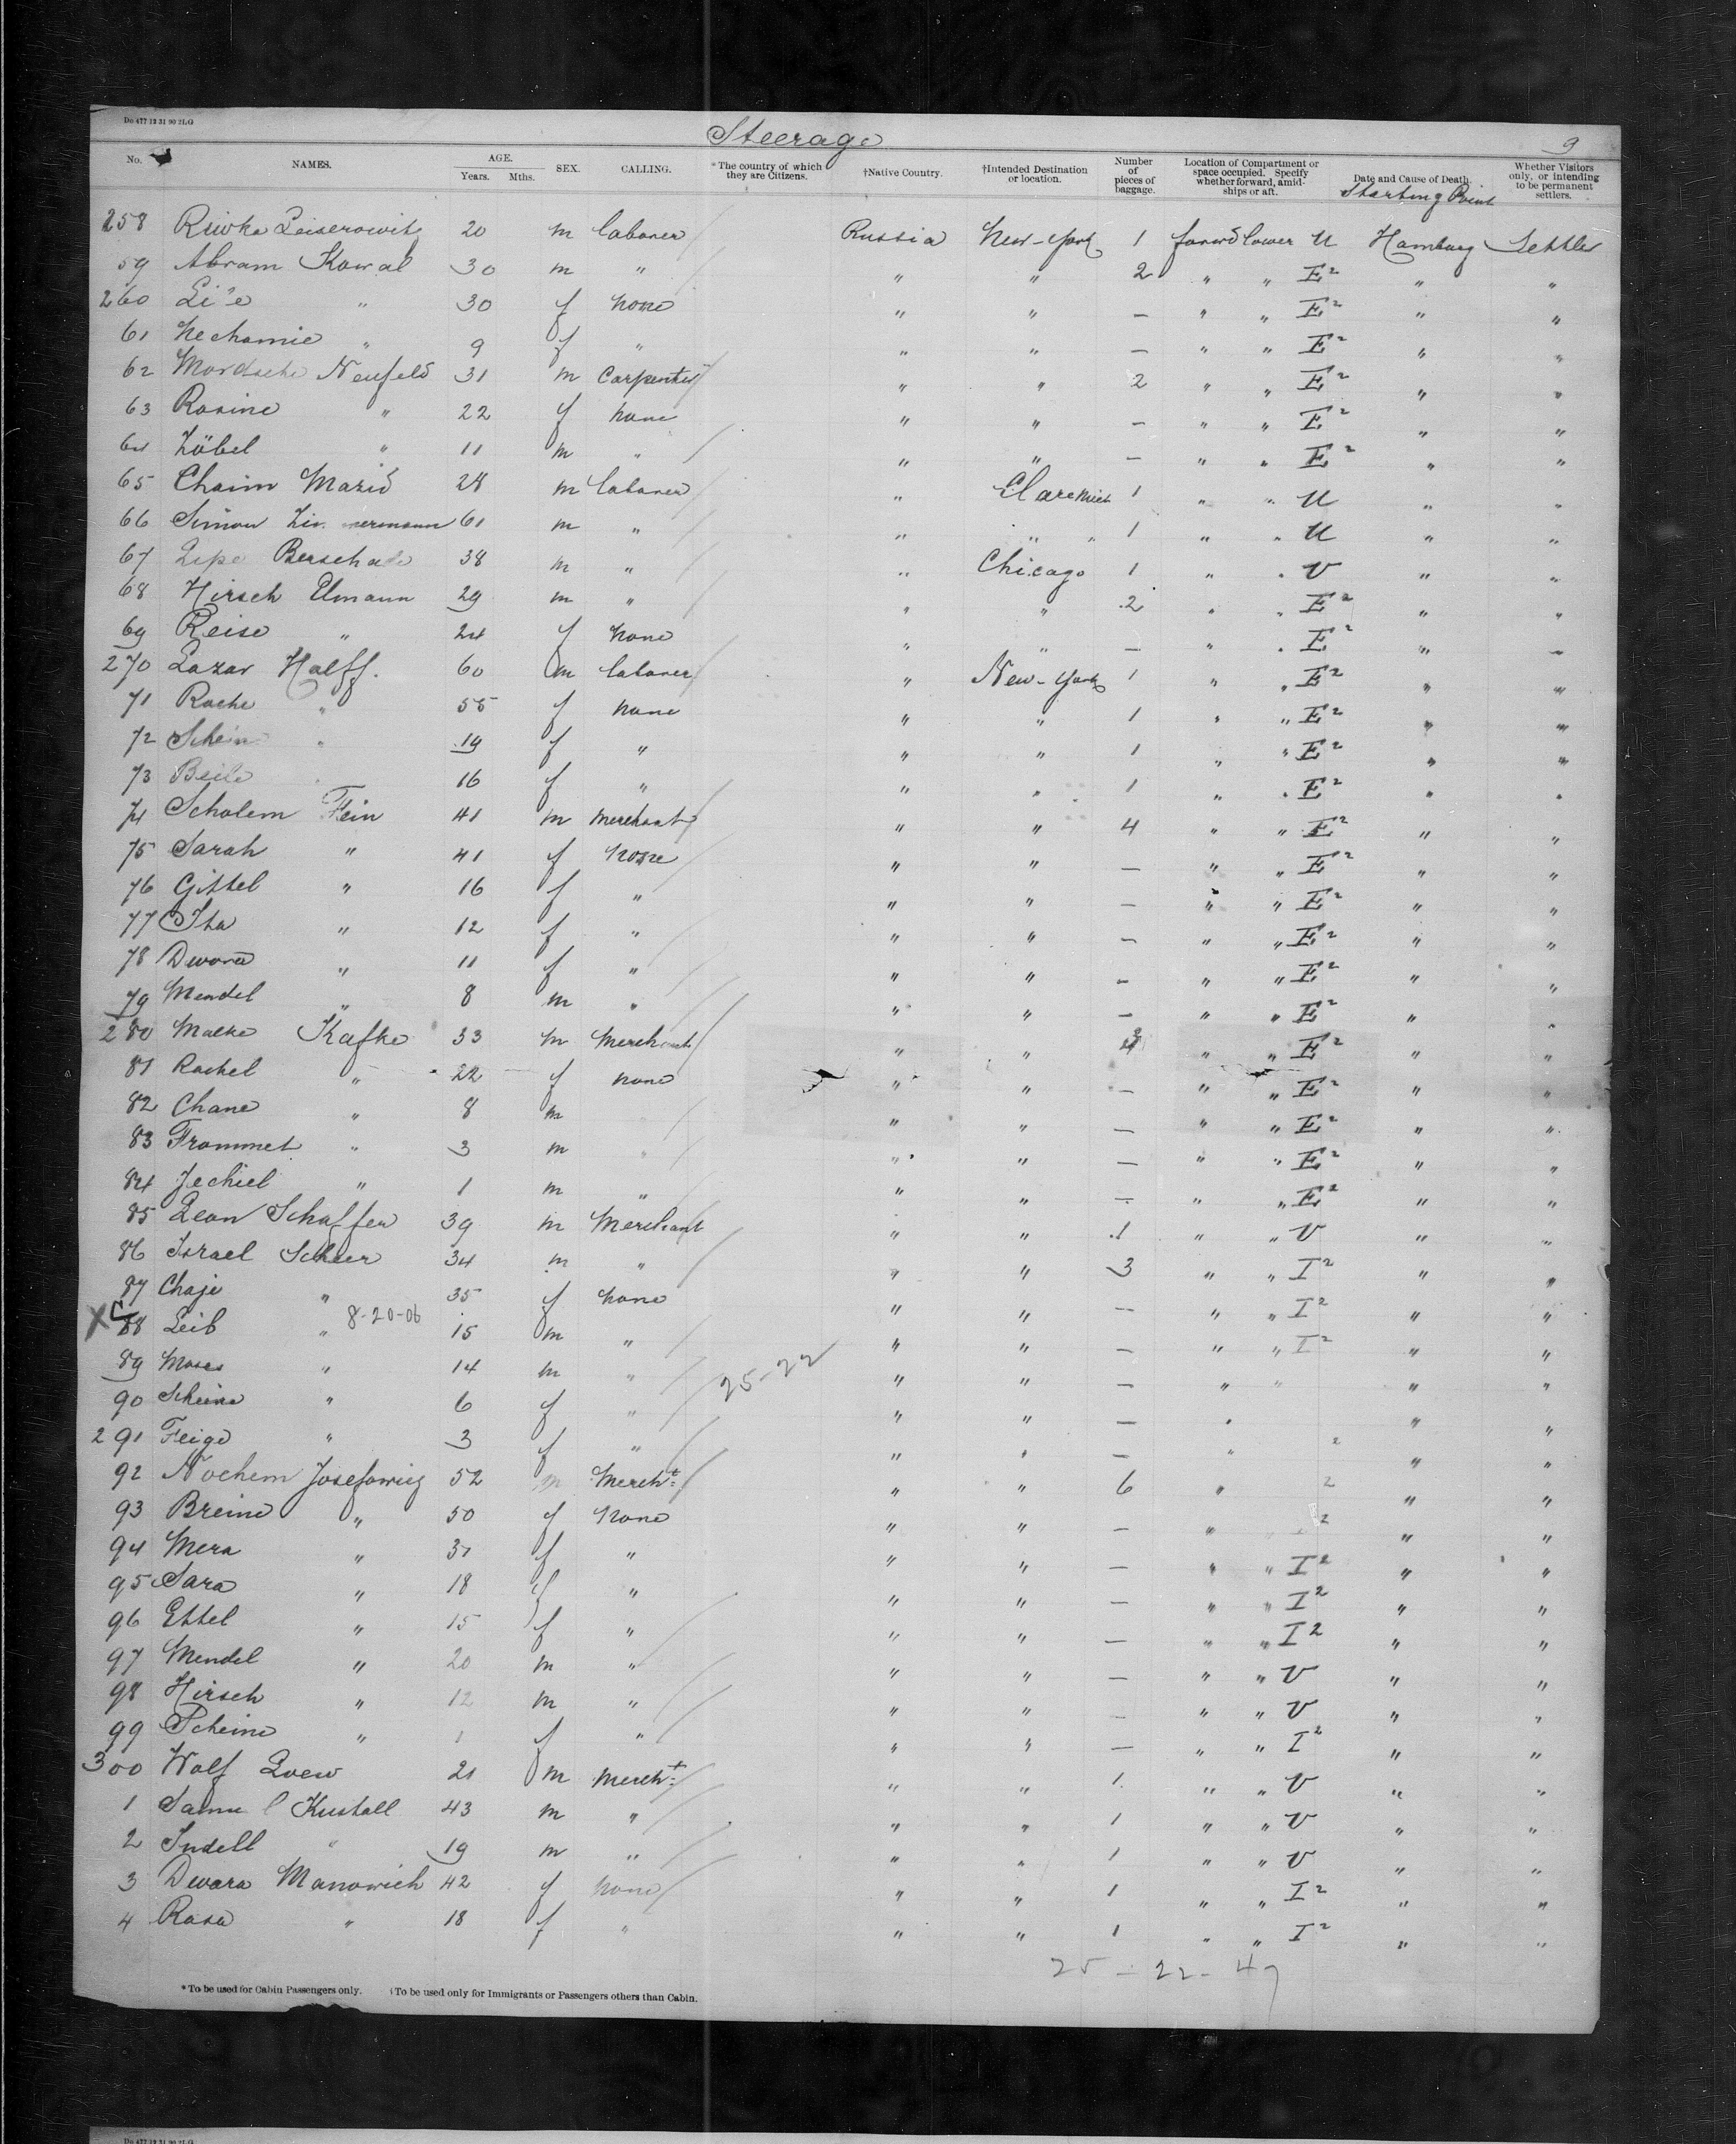 Do 477 12 31 90 2LG
Steerage 9
No. NAMES. AGE. Years. Mths. SEX. CALLING. *The country of which they are Citizens. †Native Country. †Intended Destination or location. Number of pieces of baggage. Location of Compartment or space occupied. Specify whether forward, amidships or aft. Date and Cause of Death. Starting Point Whether Visitors only, or intending to be permanent settlers.
258 Riwke Leiserowitz 20 m laborer Russia New-York 1 forwd lower U Hamburg Settler
59 Abram Kowal 30 m " " " 2 " " E2 " "
260 " 30 f none " " — " " E2 " "
61 Nechamie " 9 f " " " — " " E2 " "
62 Mordsche Neufeld 31 m Carpenter " " 2 " " E2 " "
63 Rosine " 22 f none " " — " " E2 " "
64 Zöbel " 11 m " " " — " " E2 " "
65 Chaim Mazid 28 m laborer " Clare Mich 1 " " U " "
66 Simon 61 m " " " " 1 " " U " "
67 38 m " " Chicago 1 " " V " "
68 Hirsch Elmann 29 m " " " 2 " " E2 " "
69 Reise " 24 f none " " — " " E2 " "
270 Lazar Halff. 60 m laborer " New-York 1 " " E2 " "
71 Roche " 55 f none " " 1 " " E2 " "
72 " 19 f " " " 1 " " E2 " "
73 Beile " 16 f " " " 1 " " E2 " "
74 Scholem Fein 41 m merchant " " 4 " " E2 " "
75 Sarah " 41 f none " " — " " E2 " "
76 Gittel " 16 f " " " — " " E2 " "
77 Ita " 12 f " " " — " " E2 " "
78 Dwora " 11 f " " " — " " E2 " "
79 Mendel " 8 m " " " — " " E2 " "
280 Malke Kafke 33 m Merchant " " " " E2 " "
81 Rachel " 22 f none " " — " " E2 " "
82 Chane " 8 m " " — " " E2 " "
83 Frommet " 3 m " " " — " " E2 " "
84 Jechiel " 1 m " " " — " " E2 " "
85 Leon Schaffer 39 m Merchant " " 1 " " V " "
86 Israel Scheer 34 m " " " 3 " " I2 " "
87 Chaje " 35 f none " " — " " I2 " "
X C 88 Leib " 8-20-06 15 m " " " — " " I2 " "
89 Moses " 14 m " 25-22 " " — " " " "
90 Scheine " 6 f " " " — " " "
291 Feige " 3 f " " " — " 2 " "
92 Nochem Josefowicz 52 m Mercht " " 6 " 2 " "
93 Breine " 50 f none " " — " 2 " "
94 Mera " f " " " — " " I2 " "
95 Sara " 18 f " " " — " " I2 " "
96 Ettel " 15 f " " " — " " I2 " "
97 Mendel " 20 m " " " — " " V " "
98 Hirsch " 12 m " " " — " " V " "
99 Scheine " 1 f " " " — " " I2 " "
300 Wolf Loew 21 m mercht " " 1 " " V " "
1 Samuel Kustall 43 m " " " 1 " " V " "
2 Indell " 19 m " " " 1 " " V " "
3 Dwara Manowich 42 f none " " 1 " " I2 " "
4 Rosa " 18 f " " " 1 " " I2 " "
25 - 22 - 47
*To be used for Cabin Passengers only. †To be used only for Immigrants or Passengers others than Cabin.
Do 477 12 31 90 2LG